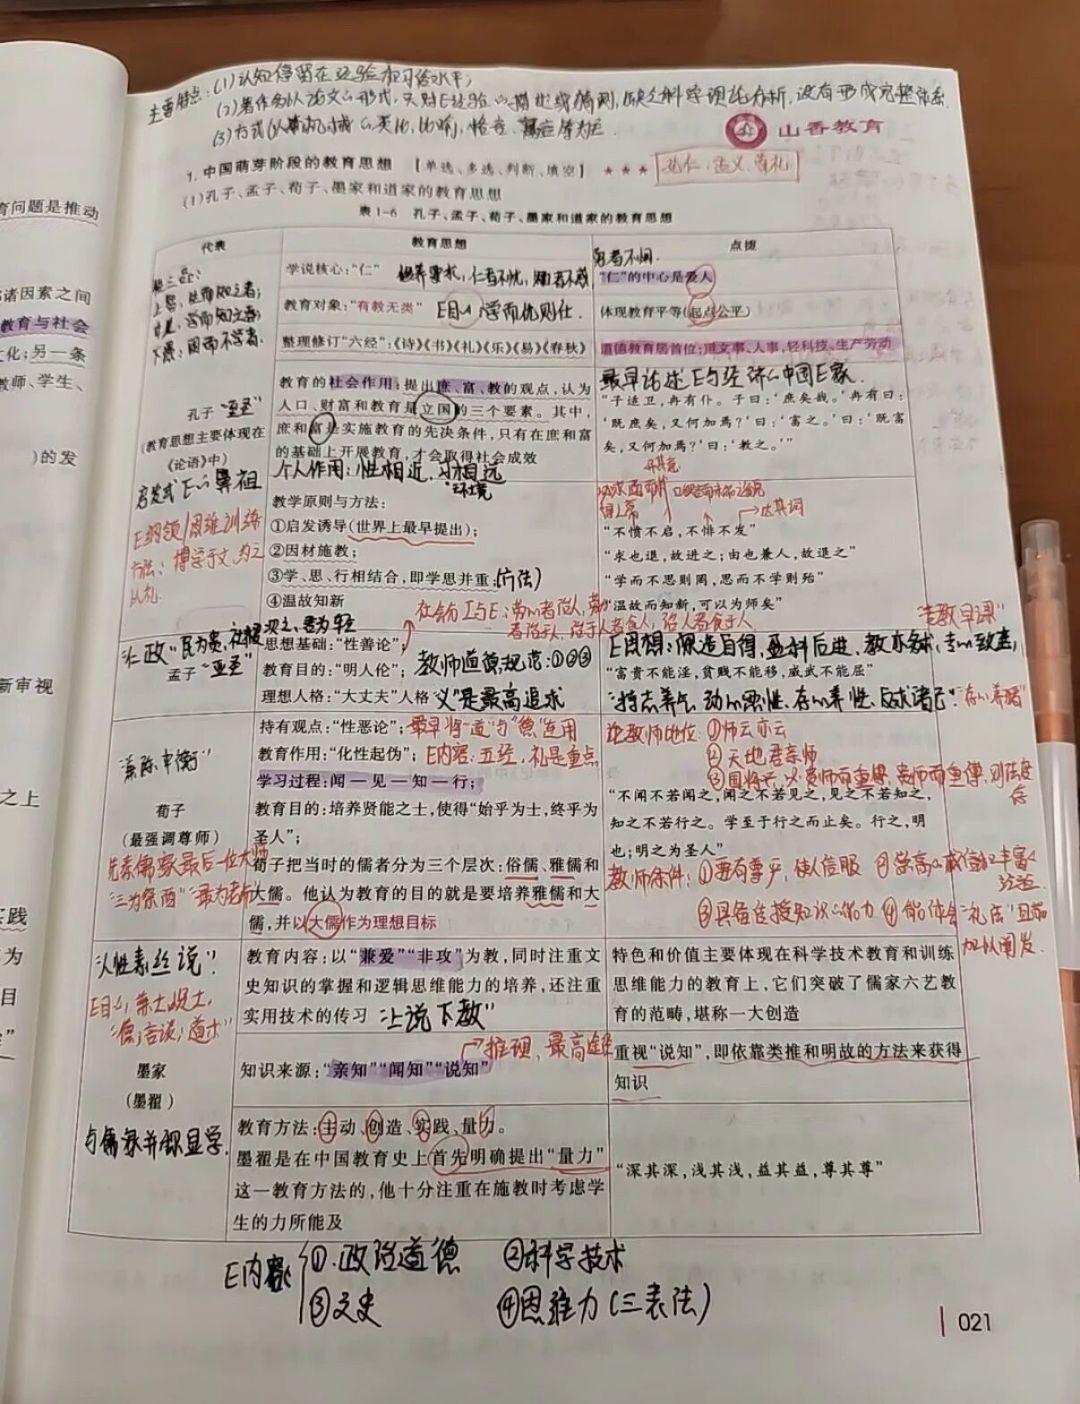 主要特点:(1)认知停留在经验和习俗水平;
(2)著作多以论文的形式,只对E经验的描述或猜测,缺乏科学理论分析,没有形成完整体系
(3)方式
山香教育
1.中国萌芽阶段的教育思想 【单选、多选、判断、填空】 ★★★
孔仁、孟义、荀礼
(1)孔子、孟子、荀子、墨家和道家的教育思想
表1-6 孔子、孟子、荀子、墨家和道家的教育思想
代表 教育思想 点拨
学说核心:“仁”
仁者不忧,知者不惑
勇者不惧.
“仁”的中心是爱人
上智:生而知之者;
学而知之者;
下愚:困而不学者.
教育对象:“有教无类”
学而优则仕.
体现教育平等(起点公平)
整理修订“六经”:《诗》《书》《礼》《乐》《易》《春秋》
道德教育居首位;重文事、人事,轻科技、生产劳动
孔子
(教育思想主要体现在
《论语》中)
启发式E的鼻祖
E纲领/思维训练
方法:博学于文,约之
以礼
教育的社会作用:提出庶、富、教的观点,认为
人口、财富和教育是立国的三个要素。其中,
庶和富是实施教育的先决条件,只有在庶和富
的基础上开展教育,才会取得社会成效
个人作用:性相近,习相远
最早论述E与经济的中国E家.
“子适卫,冉有仆。子曰:‘庶矣哉。’冉有曰:
‘既庶矣,又何加焉?’曰:‘富之。’曰:‘既富
矣,又何加焉?’曰:‘教之。’”
教学原则与方法:
①启发诱导(世界上最早提出);
②因材施教;
③学、思、行相结合,即学思并重;(方法)
④温故知新
→达其词
“不愤不启,不悱不发”
“求也退,故进之;由也兼人,故退之”
“学而不思则罔,思而不学则殆”
“温故而知新,可以为师矣”
“仁政”“民为贵,社稷次之,君为轻
孟子“亚圣”
思想基础:“性善论”;
教育目的:“明人伦”;
教师道德规范:①②③
理想人格:“大丈夫”人格
“义”是最高追求
E思想:深造自得,盈科后进,教亦多术,专心致志,
“富贵不能淫,贫贱不能移,威武不能屈”
“持志养气、动心忍性、存心养性、反求诸己”
“兼陈中衡”
荀子
(最强调尊师)
先秦儒家最后一位大师
“三为祭酒”“最为老师”
持有观点:“性恶论”;
最早将“道”与“德”连用
教育作用:“化性起伪”;
E内容:五经、礼是重点
学习过程:闻—见—知—行;
教育目的:培养贤能之士,使得“始乎为士,终乎为
圣人”;
荀子把当时的儒者分为三个层次:俗儒、雅儒和
大儒。他认为教育的目的就是要培养雅儒和大
儒,并以大儒作为理想目标
论教师地位:①师云亦云
②天地君亲师
③国将兴,必贵师而重傅,贵师而重傅,则法度
存
“不闻不若闻之,闻之不若见之,见之不若知之,
知之不若行之。学至于行之而止矣。行之,明
也;明之为圣人”
教师条件:①要有尊严,使人信服 ②崇高的威信和丰富的
经验.
③具备传授知识的能力 ④能体会“礼法”且能
加以阐发.
“人性素丝说”.
E目的,兼士或贤士,
“德,言谈,道术”
墨家
(墨翟)
与儒家并称显学.
教育内容:以“兼爱”“非攻”为教,同时注重文
史知识的掌握和逻辑思维能力的培养,还注重
实用技术的传习
“上说下教”
特色和价值主要体现在科学技术教育和训练
思维能力的教育上,它们突破了儒家六艺教
育的范畴,堪称一大创造
→推理、最高途径
知识来源:“亲知”“闻知”“说知”
重视“说知”,即依靠类推和明故的方法来获得
知识
教育方法:主动、创造、实践、量力。
墨翟是在中国教育史上首先明确提出“量力”
这一教育方法的,他十分注重在施教时考虑学
生的力所能及
“深其深,浅其浅,益其益,尊其尊”
E内容 ①.政治道德 ②科学技术
③文史 ④思维力(三表法)
021
育问题是推动
诸因素之间
教育与社会
文化;另一条
教师、学生、
)的发
新审视
之上
实践
为
目